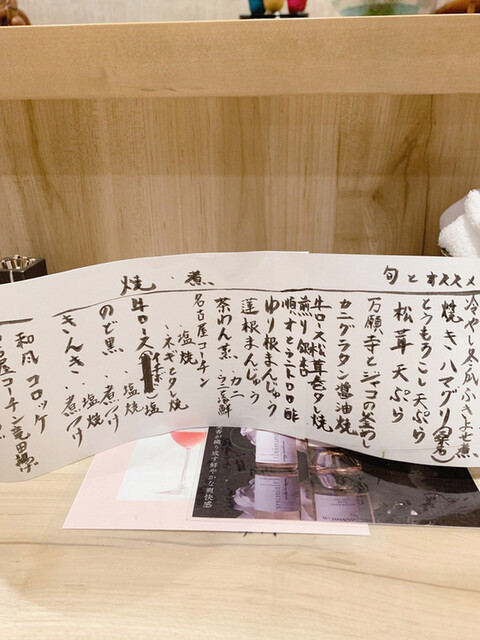 旬とオススメ
冷やし冬瓜ふきよせ煮
焼きハマグリ(桑名)
とうもろこし天ぷら
松茸天ぷら
万願寺とジャコの
カニグラタン醤油焼
牛ロース松茸巻タレ焼
煎り銀杏
順才とトロロ酢
ゆり根まんじゅう
蓮根まんじゅう
茶わん蒸・カニ
焼・煮
名古屋コーチン
・塩焼
・ネギとタレ焼
牛ロース
・塩焼
のど黒・煮つけ
・塩焼
きんき・煮つけ
和風コロッケ
名古屋コーチン竜田
香が織り成す鮮やかな爽快感